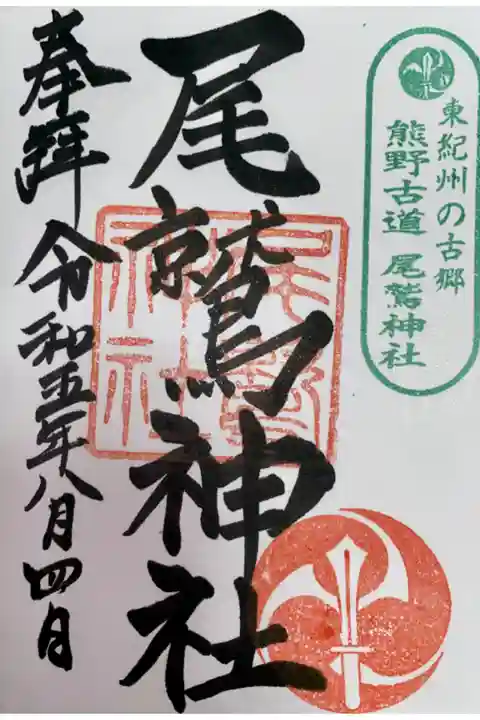 東紀州の古郷
熊野古道 尾鷲神社
尾鷲神社
奉拝 令和五年八月四日